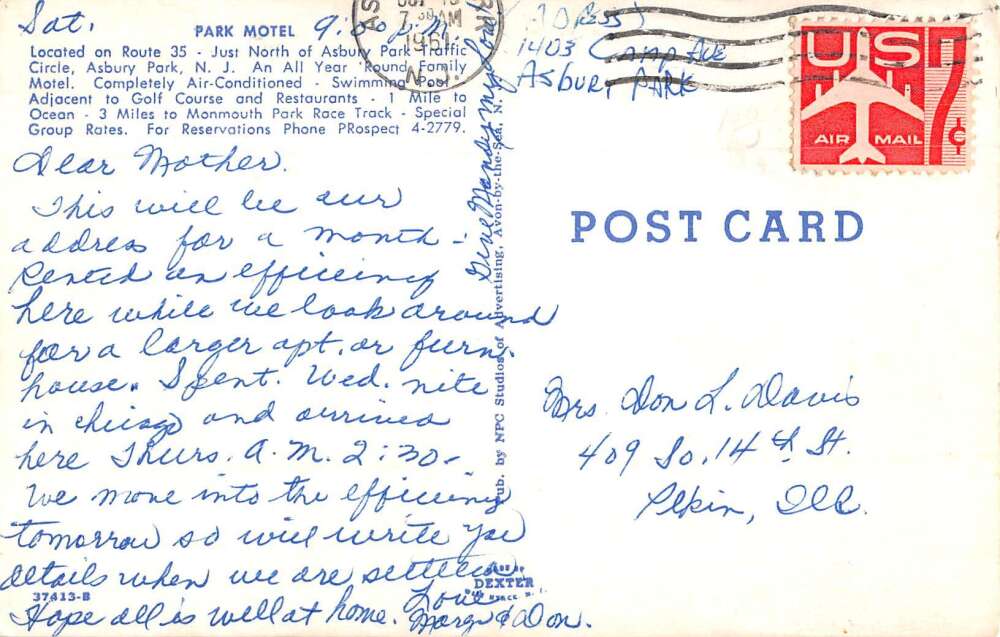 Sat. 9:30 P.M.
PARK MOTEL
Located on Route 35 - Just North of Asbury Park Traffic
Circle, Asbury Park, N. J. An All Year 'Round Family
Motel. Completely Air-Conditioned - Swimming Pool
Adjacent to Golf Course and Restaurants - 1 Mile to
Ocean - 3 Miles to Monmouth Park Race Track - Special
Group Rates. For Reservations Phone PRospect 4-2779.
Dear Mother.
This will be our
address for a month -
Rented an efficiency
here while we look around
for a larger apt. or furn.
house. Spent. Wed. nite
in Chicago and arrived
here Thurs. A.M. 2:30 -
We move into the efficiency
tomorrow so will write you
details when we are settled
Hope all is well at home.
Love
Marge & Don.
37413-B
Give Mandy my love
Pub. by NPC Studios of Advertising, Avon-by-the-Sea, N. J.
DEXTER
7 30 AM
1961
N. J.
(Address)
1403 Camp Ave
Asbury Park
US
7¢
AIR MAIL
POST CARD
Mrs Don L. Davis
409 So. 14th St.
Pekin, Ill.